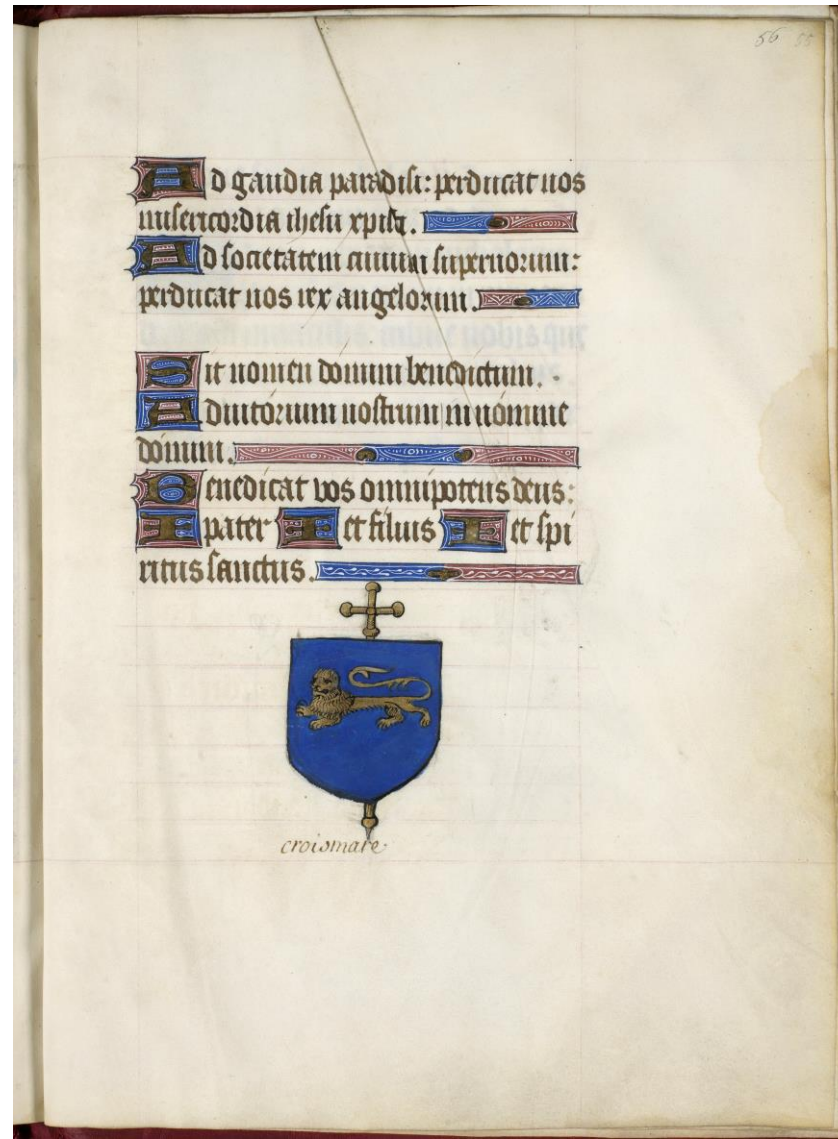 56 55
Ad gaudia paradisi: perducat nos
misericordia ihesu xpisti.
Ad societatem ciuium supernorum:
perducat nos rex angelorum.
Sit nomen domini benedictum.
Adiutorium nostrum in nomine
domini.
Benedicat vos omnipotens deus:
pater et filius et spi
ritus sanctus.
croismare